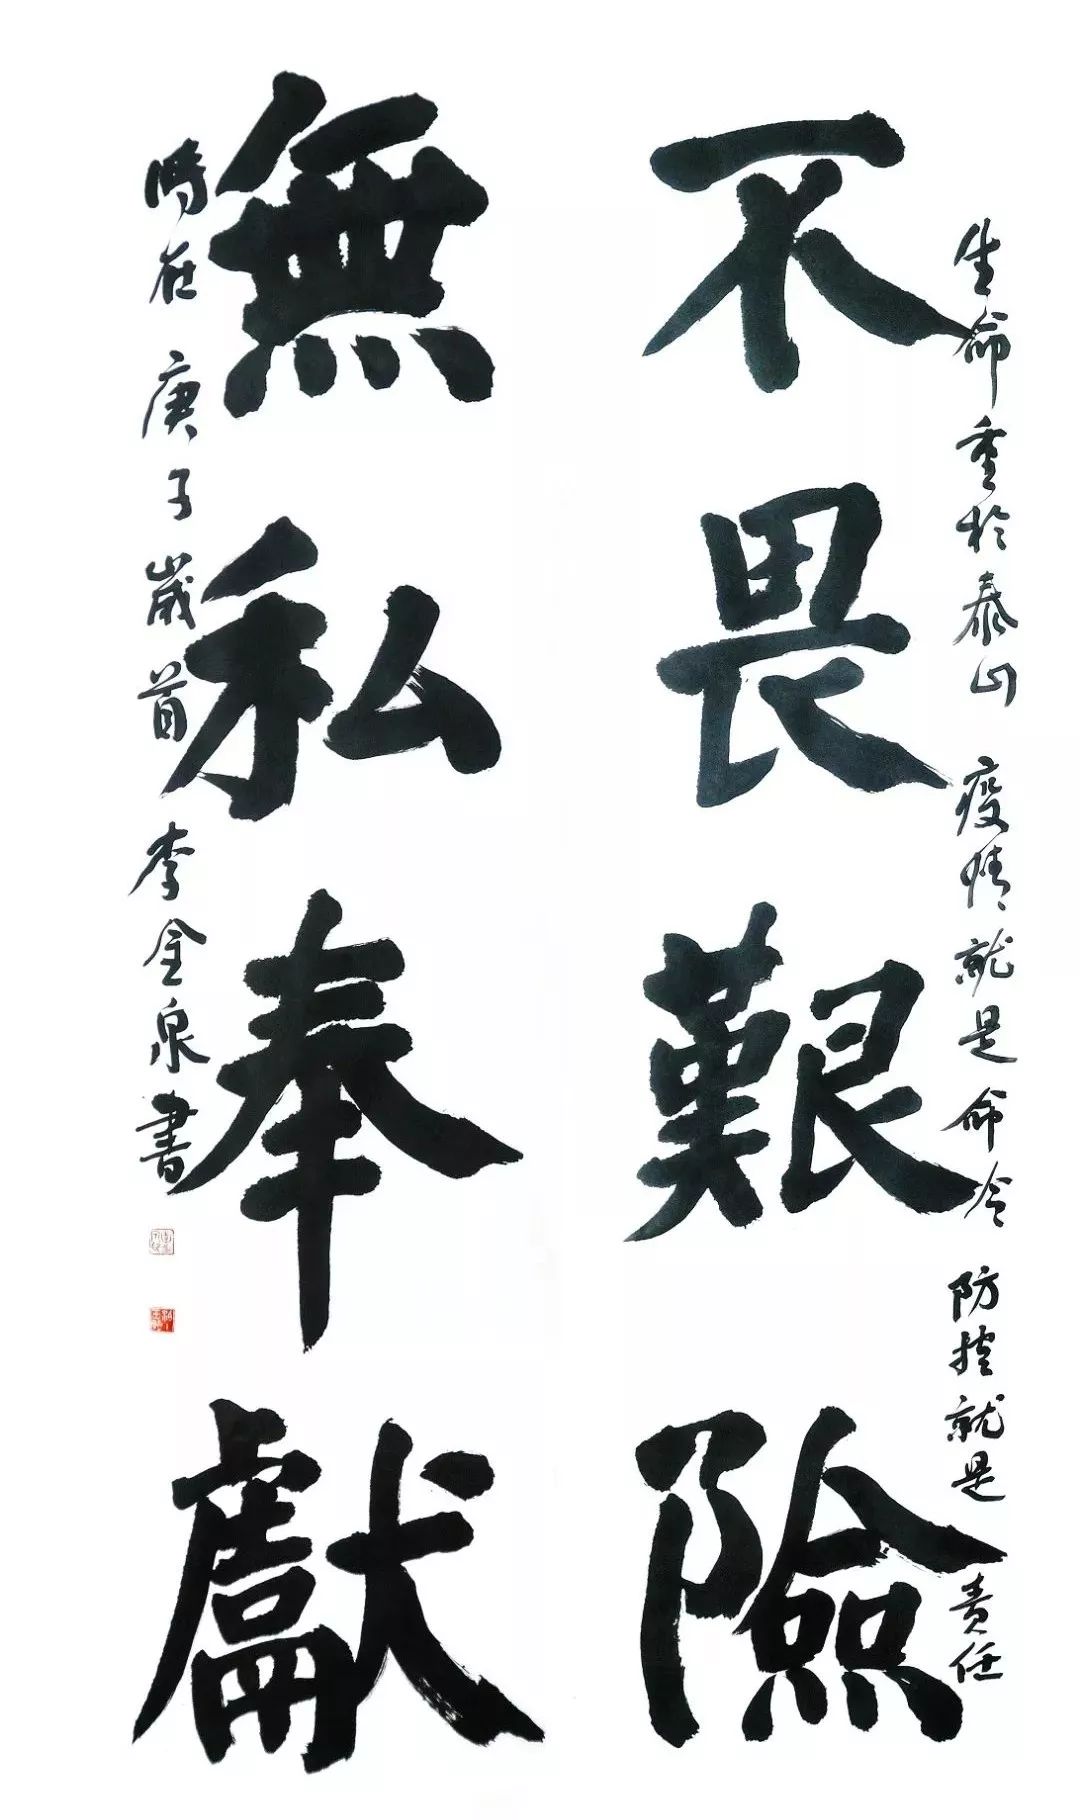 生命重於泰山 疫情就是命令 防控就是責任
不畏艱險
無私奉獻
時在庚子歲首 李金泉書